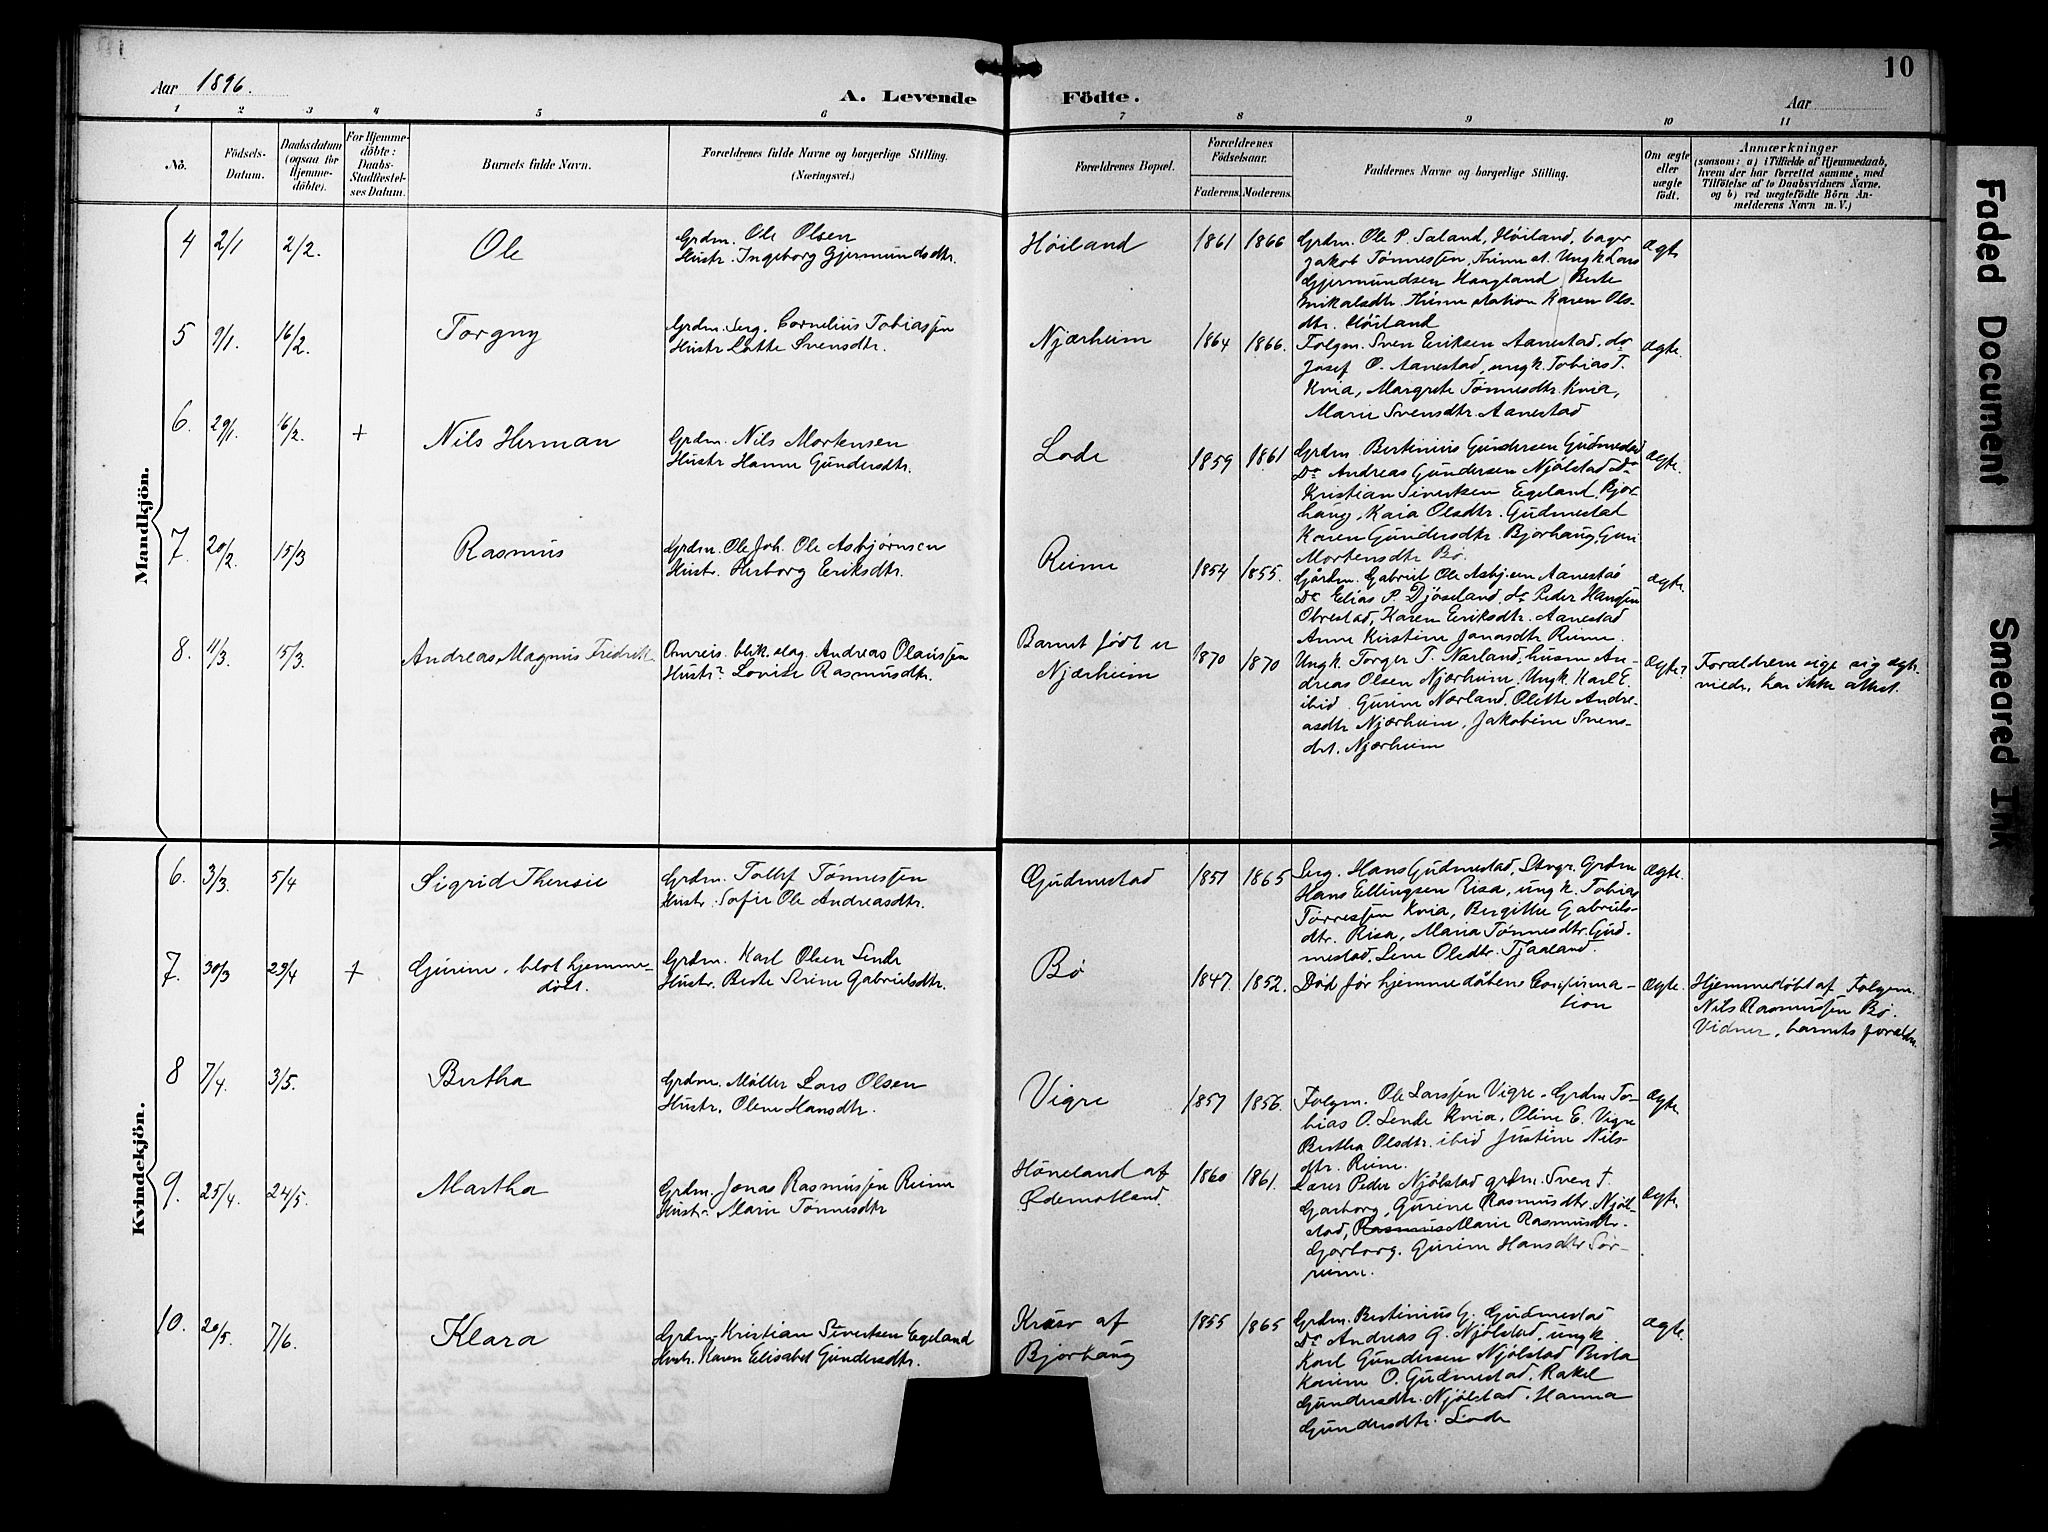 10
Aar 1896.
A. Levende Födte.
Aar
1 2 3 4 5 6 7 8 9 10 11
No.
Födsels-Datum.
Daabsdatum (ogsaa for Hjemmedöbte).
For Hjemmedöbte: Daabs-Stadfæstelses Datum.
Barnets fulde Navn.
Forældrenes fulde Navne og borgerlige Stilling. (Næringsvei.)
Forældrenes Bopæl.
Forældrenes Födselsaar.
Faderens. Moderens.
Faddernes Navne og borgerlige Stilling.
Om ægte eller uægte födt.
Anmærkninger
(saasom: a) i Tilfælde af Hjemmedaab,
hvem der har forrettet samme, med
Tilföielse af to Daabsvidners Navne,
og b) ved uægtefödte Börn An-
melderens Navn m. V.)
Mandkjön.
4 2/1 2/2. Ole
Grdm. Ole Olsen
Hustr. Ingeborg Gjermundsdtr.
Høiland 1861 1866
Grdm. Ole P. Saland, Høiland, bager
Jakob Tønnessen, Thime st. Ungk. Lars
Gjermundsen Haagland, Berte
Mikalsdtr. Thime station Karen Ols-
dtr. Høiland
ægte
5 9/1. 16/2. Torgny
Grdm. Serg. Cornelius Tobiassen
Hustr. Lotte Svensdtr.
Njærheim 1864 1866.
Folgm. Sven Eriksen Aanestad, do
Josef O. Aanestad, ungk. Tobias T.
Kvia, Margrete Tønnesdtr. Kvia,
Marie Svensdtr. Aanestad
ægte.
6. 29/1. 16/2. + Nils Herman
Grdm. Nils Mortensen
Hustr. Hanne Gundersdtr.
Lode 1859 1861
Grdm. Bertinius Gundersen Gudmestad
Do Andreas Gundersen Njølstad Do
Kristian Sivertsen Egeland, Bjor-
haug, Kaia Olsdtr. Gudmestad
Karen Gundersdtr. Bjorhaug, Guri
Mortensdtr. Bø.
ægte.
7. 20/2. 15/3 Rasmus
Grdm. Ole Joh. Ole Asbjørnsen
Hustr. Herborg Eriksdtr.
Reime 1854 1855.
Gårdm. Gabriel Ole Asbj.sen Aanestad
Do Elias P. Djøseland, do Peder Hansen
Obrestad, Karen Eriksdtr. Aanestad
Anne Kirstine Jonasdtr Reime.
ægte.
8. 11/3. 15/3. Andreas Magnus Fredrik
Omreis. blik. slag. Andreas Olaussen
Hustr. Lovise Rasmusdtr.
Barnet født i
Njærheim
1870 1870
Ungk. Torger T. Nærland, husm An-
dreas Olsen Njærheim, Ungk. Karl E.
ibid. Gurine Nærland. Olette Andre-
asdtr Njærheim, Jakobine Svens-
dtr. Njærheim
Ægte?
Forældrene sige sig ægte-
viede, har ikke attest.
Kvindekjön.
6. 3/3. 5/4 Sigrid Theresie
Grdm. Tollef Tønnessen
Hustr. Sofie Ole Andreasdtr.
Gudmestad 1857 1865
Serg. Hans Gudmestad, Stvgr. Grdm
Hans Ellingsen Risa, ungk. Tobias
Tørressen Kvia, Birgitte Gabriels-
dtr. Risa, Maria Tønnesdtr. Gud-
mestad, Lene Olsdtr. Tjaaland.
Ægte.
7. 30/3 29/4 + Gurine, blot hjemme-
døbt.
Grdm. Karl Olsen Lende
Hustr. Berte Serine Gabrielsdtr.
Bø 1847. 1852.
Død før hjemmedåbens Confirma-
tion
Ægte.
Hjemmedøbt af Folgem.
Nils Rasmussen Bø.
Vidner, barnets foreldre.
8 7/4. 3/5. Bertha
Grdm. Møller Lars Olsen
Hustr. Olene Hansdtr.
Vigre 1857 1856.
Folgm. Ole Larssen Vigre. Grdm. To-
bias O. Lende Kvia, Oline E. Vigre
Bertha Olsdtr. ibid Justine Nils-
dtr. Reime.
Ægte
9. 25/4. 24/5. Martha
Grdm. Jonas Rasmussen Reime
Hustr. Marie Tønnesdtr
Høneland af
Ødemotland.
1860 1861.
Lærer Peder Njølstad grdm. Sven T.
Garborg, Gurine Rasmusdtr. Njøl-
stad, Rasmus Marie Rasmusdtr.
Garborg. Gurine Hansdtr Sør-
reime.
Ægte.
10. 20/5. 7/6. Klara
Grdm. Kristian Sivertsen Egeland
Hustr. Karen Elisabet Gundersdtr.
af
Bjorhaug
1855 1865
Grdm. Bertinius G. Gudmestad
Do Andreas G. Njølstad, ungk.
Karl Gundersen Njølstad Berta
Karine O. Gudmestad, Rakel
Gundersdtr. Njølstad. Hanna
Gundersdtr. Lode
Ægte.
Faded Document
Smeared Ink